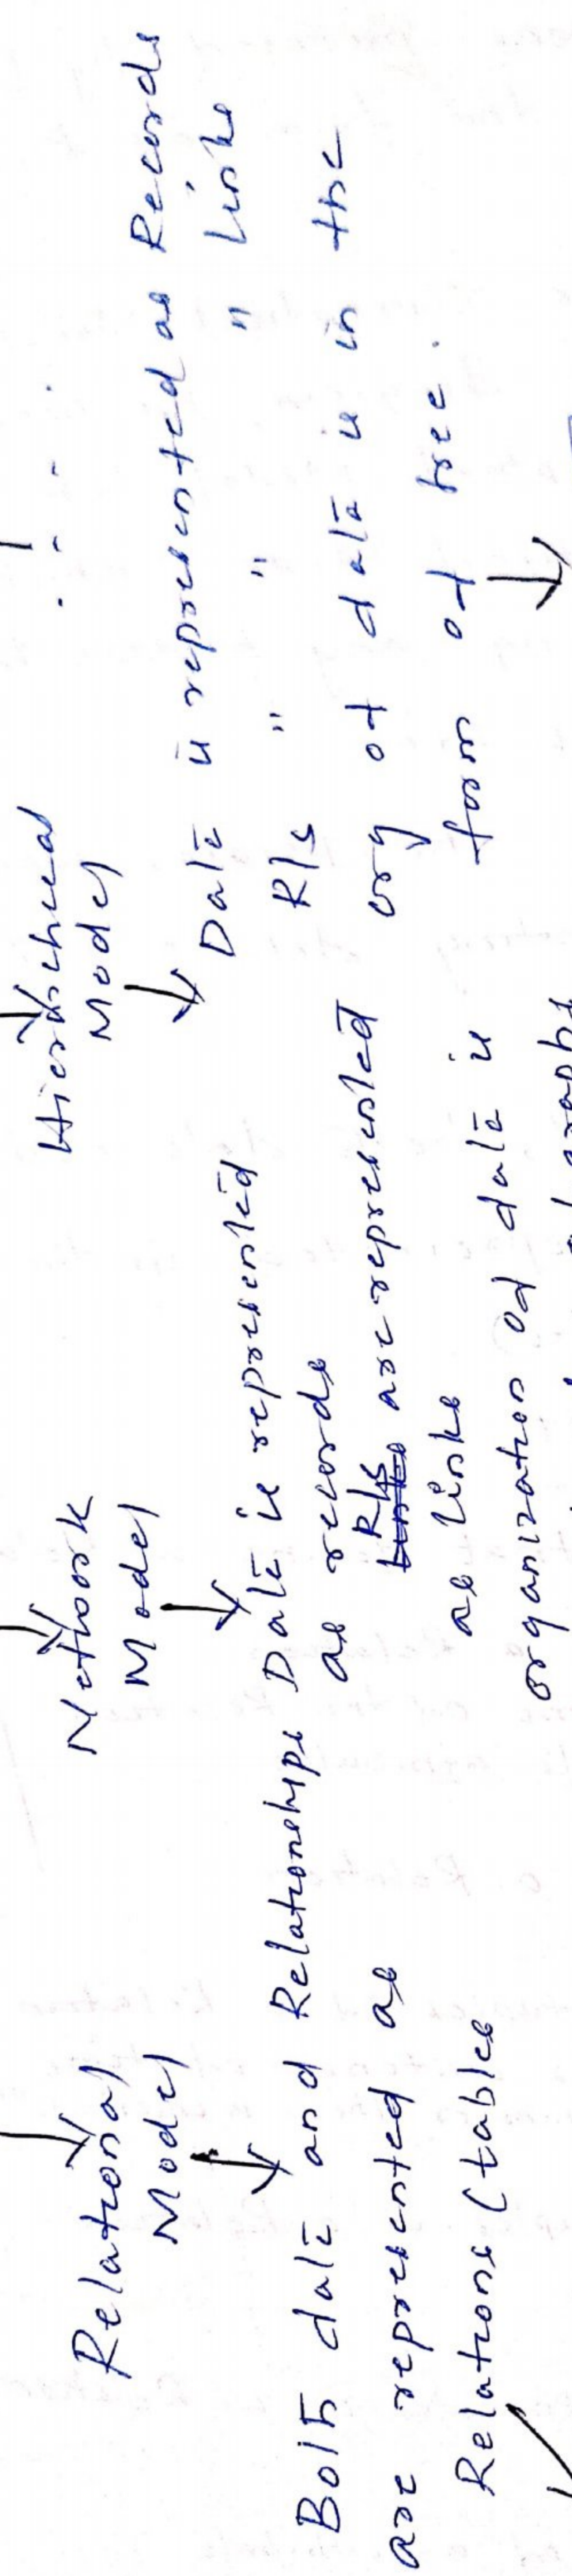 Relational
Model
Both data and Relationships
are represented as
Relations (tables
Network
Model
Data is represented
as records
R/s are represented
as links
organization of data is
graphs
Hierarchical
Model
Data is represented as Records
R/s " " " links
org of data is in the
form of tree.